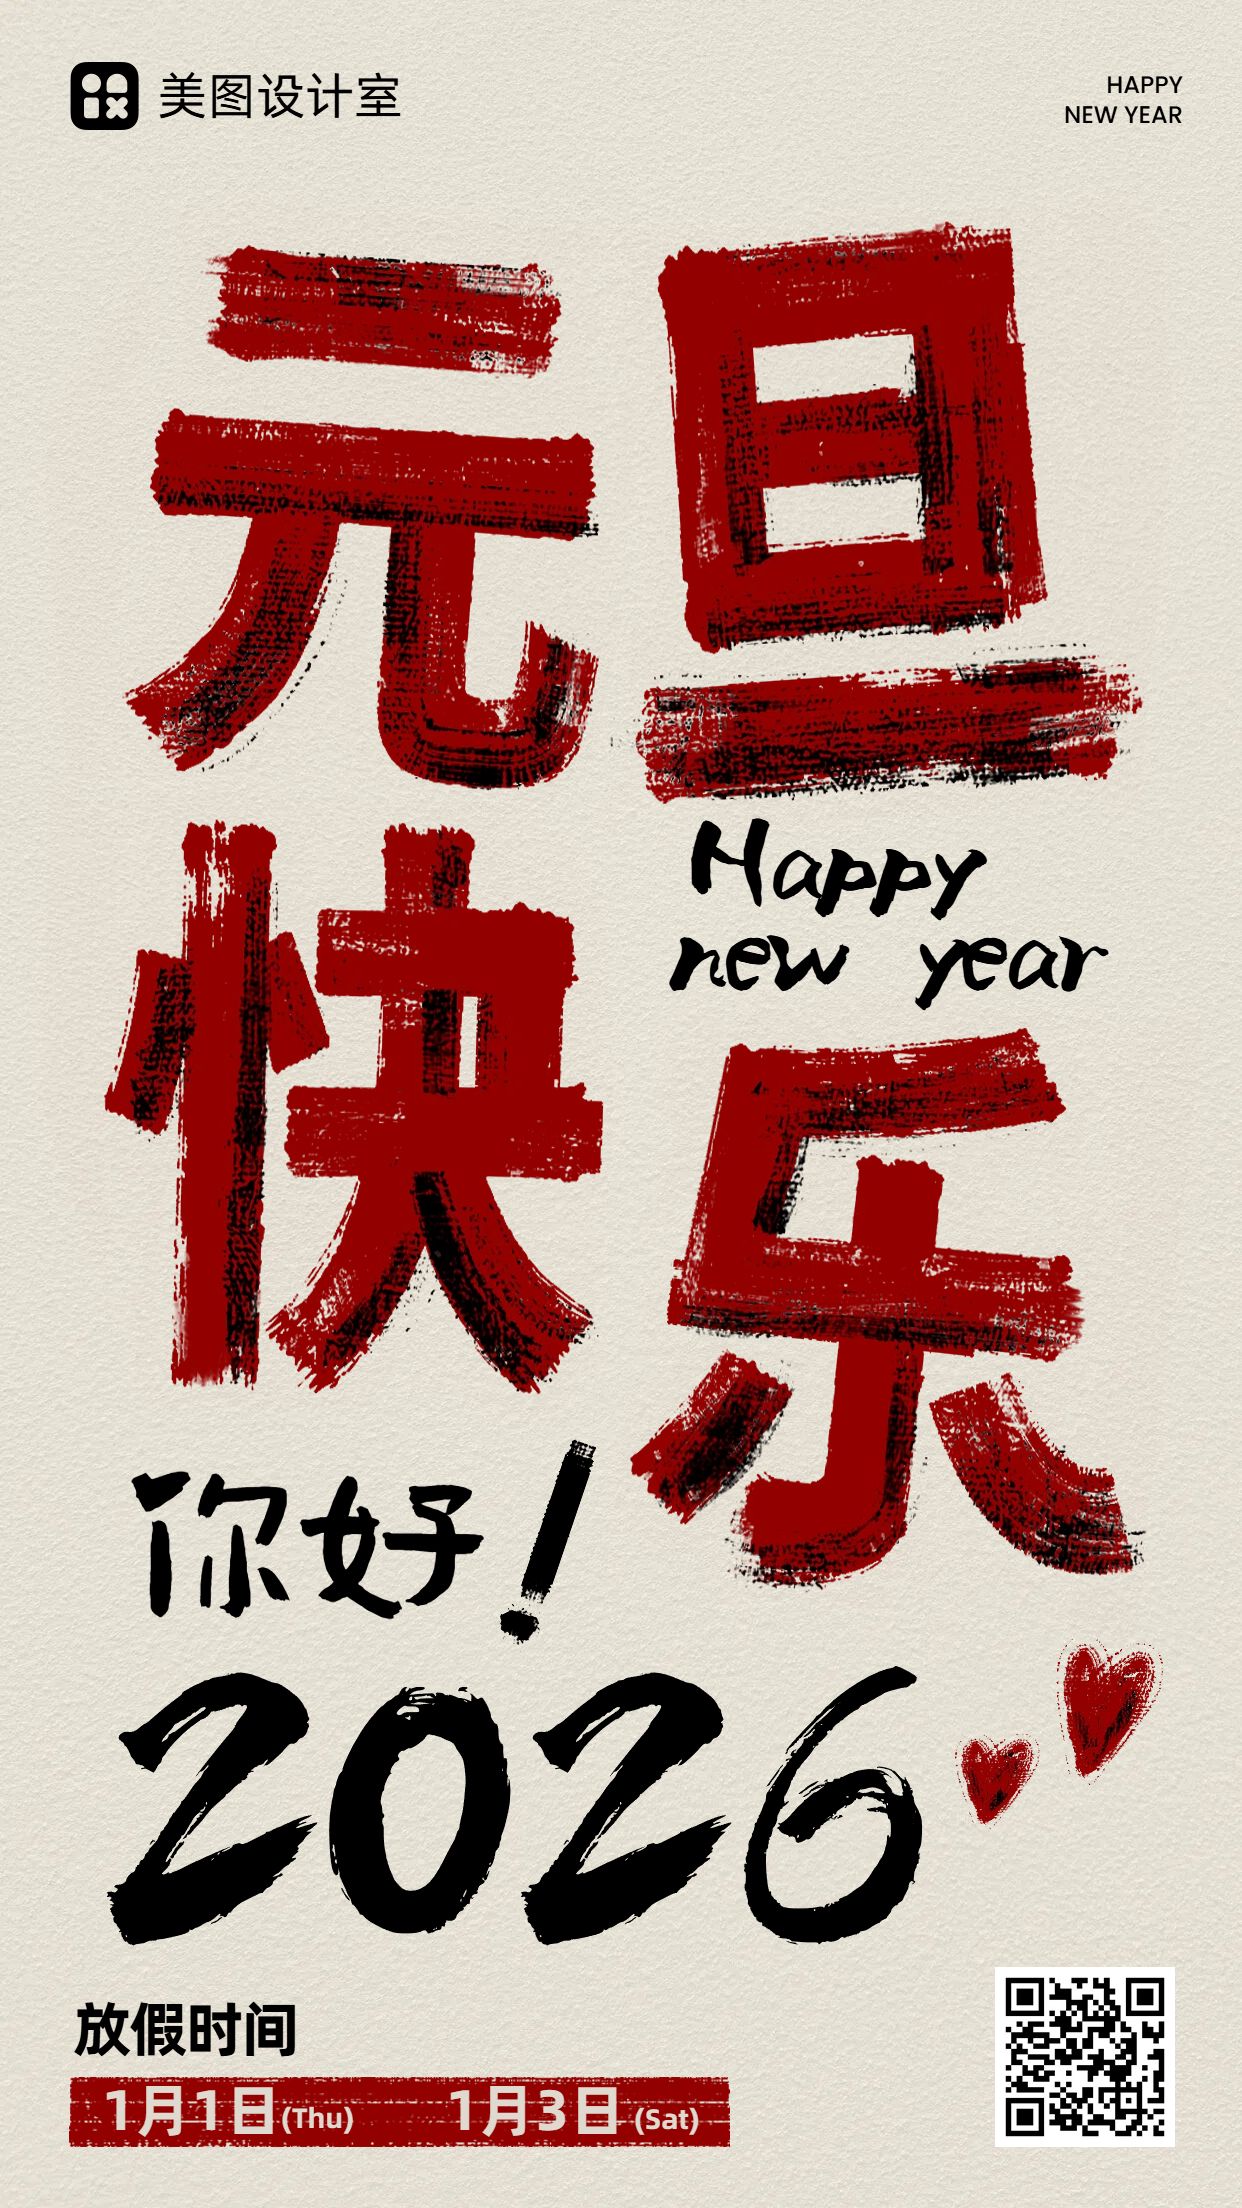 美图设计室
HAPPY
NEW YEAR
元旦
Happy
new year
快乐
你好!
2026
放假时间
1月1日(Thu) 1月3日(Sat)